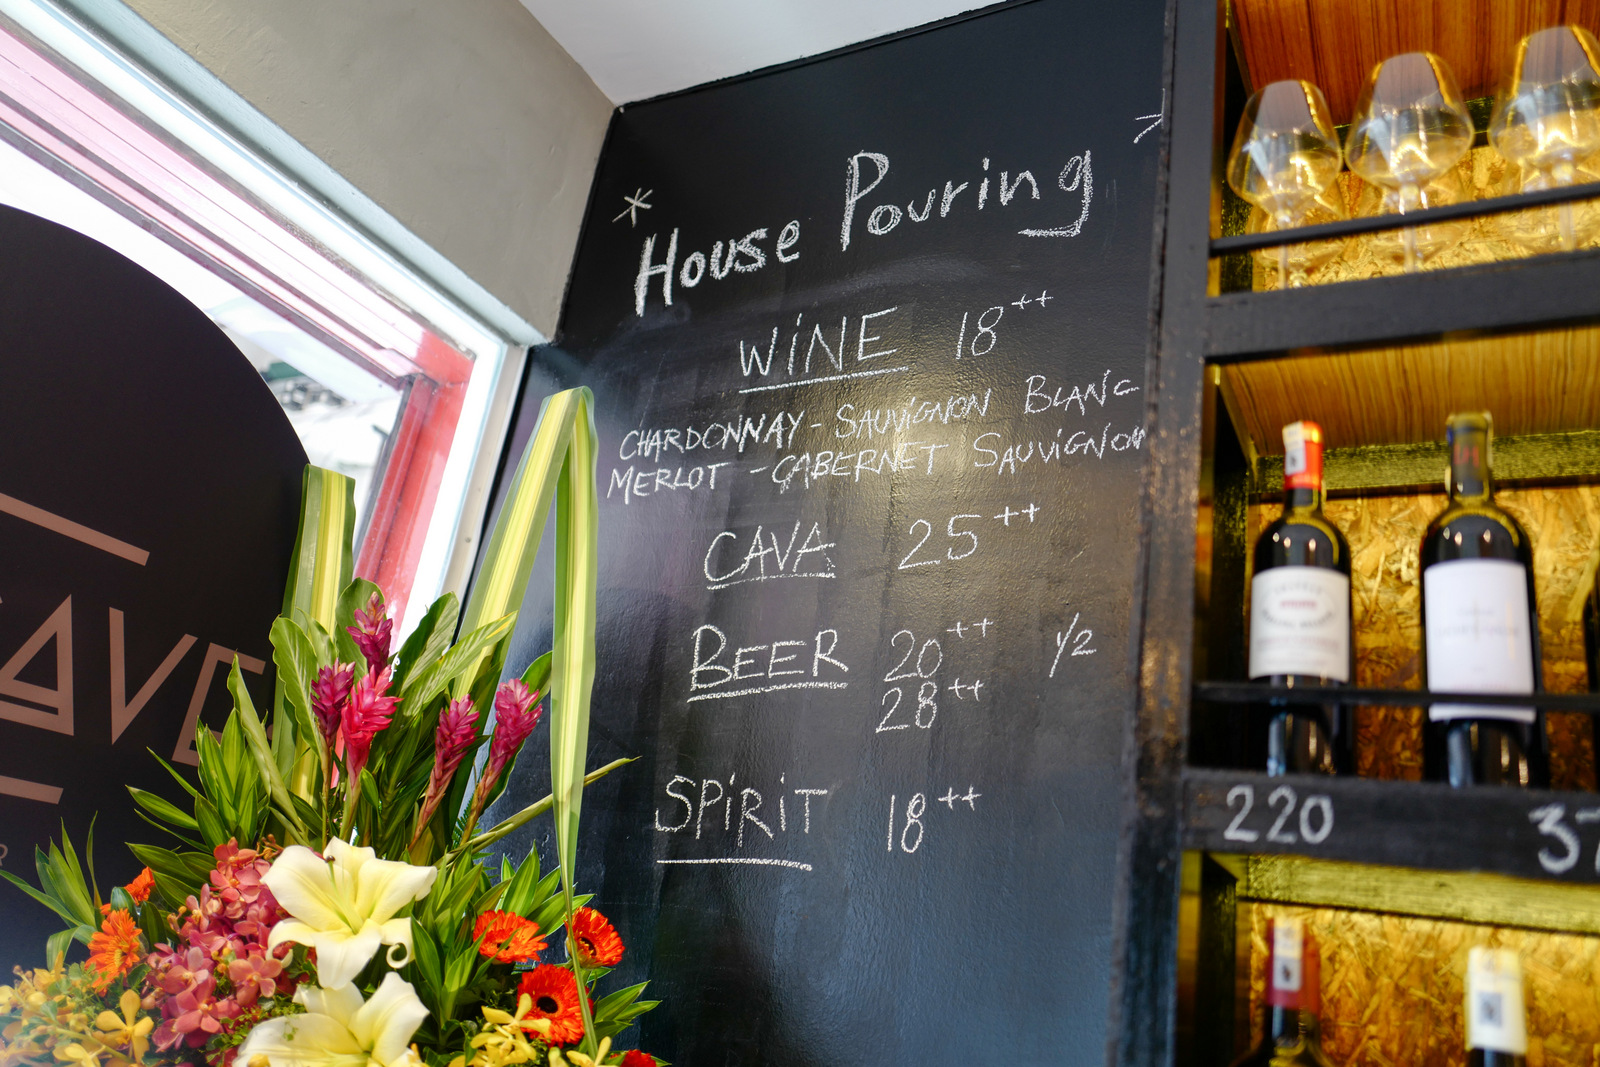 * House Pouring *
WiNE 18++
CHARDONNAY - SAUViGNON BLANC
MERLOT - CABERNET SAUViGNON
CAVA 25++
BEER 20++ 1/2
28++
SPiRiT 18++
CAVE
220
37